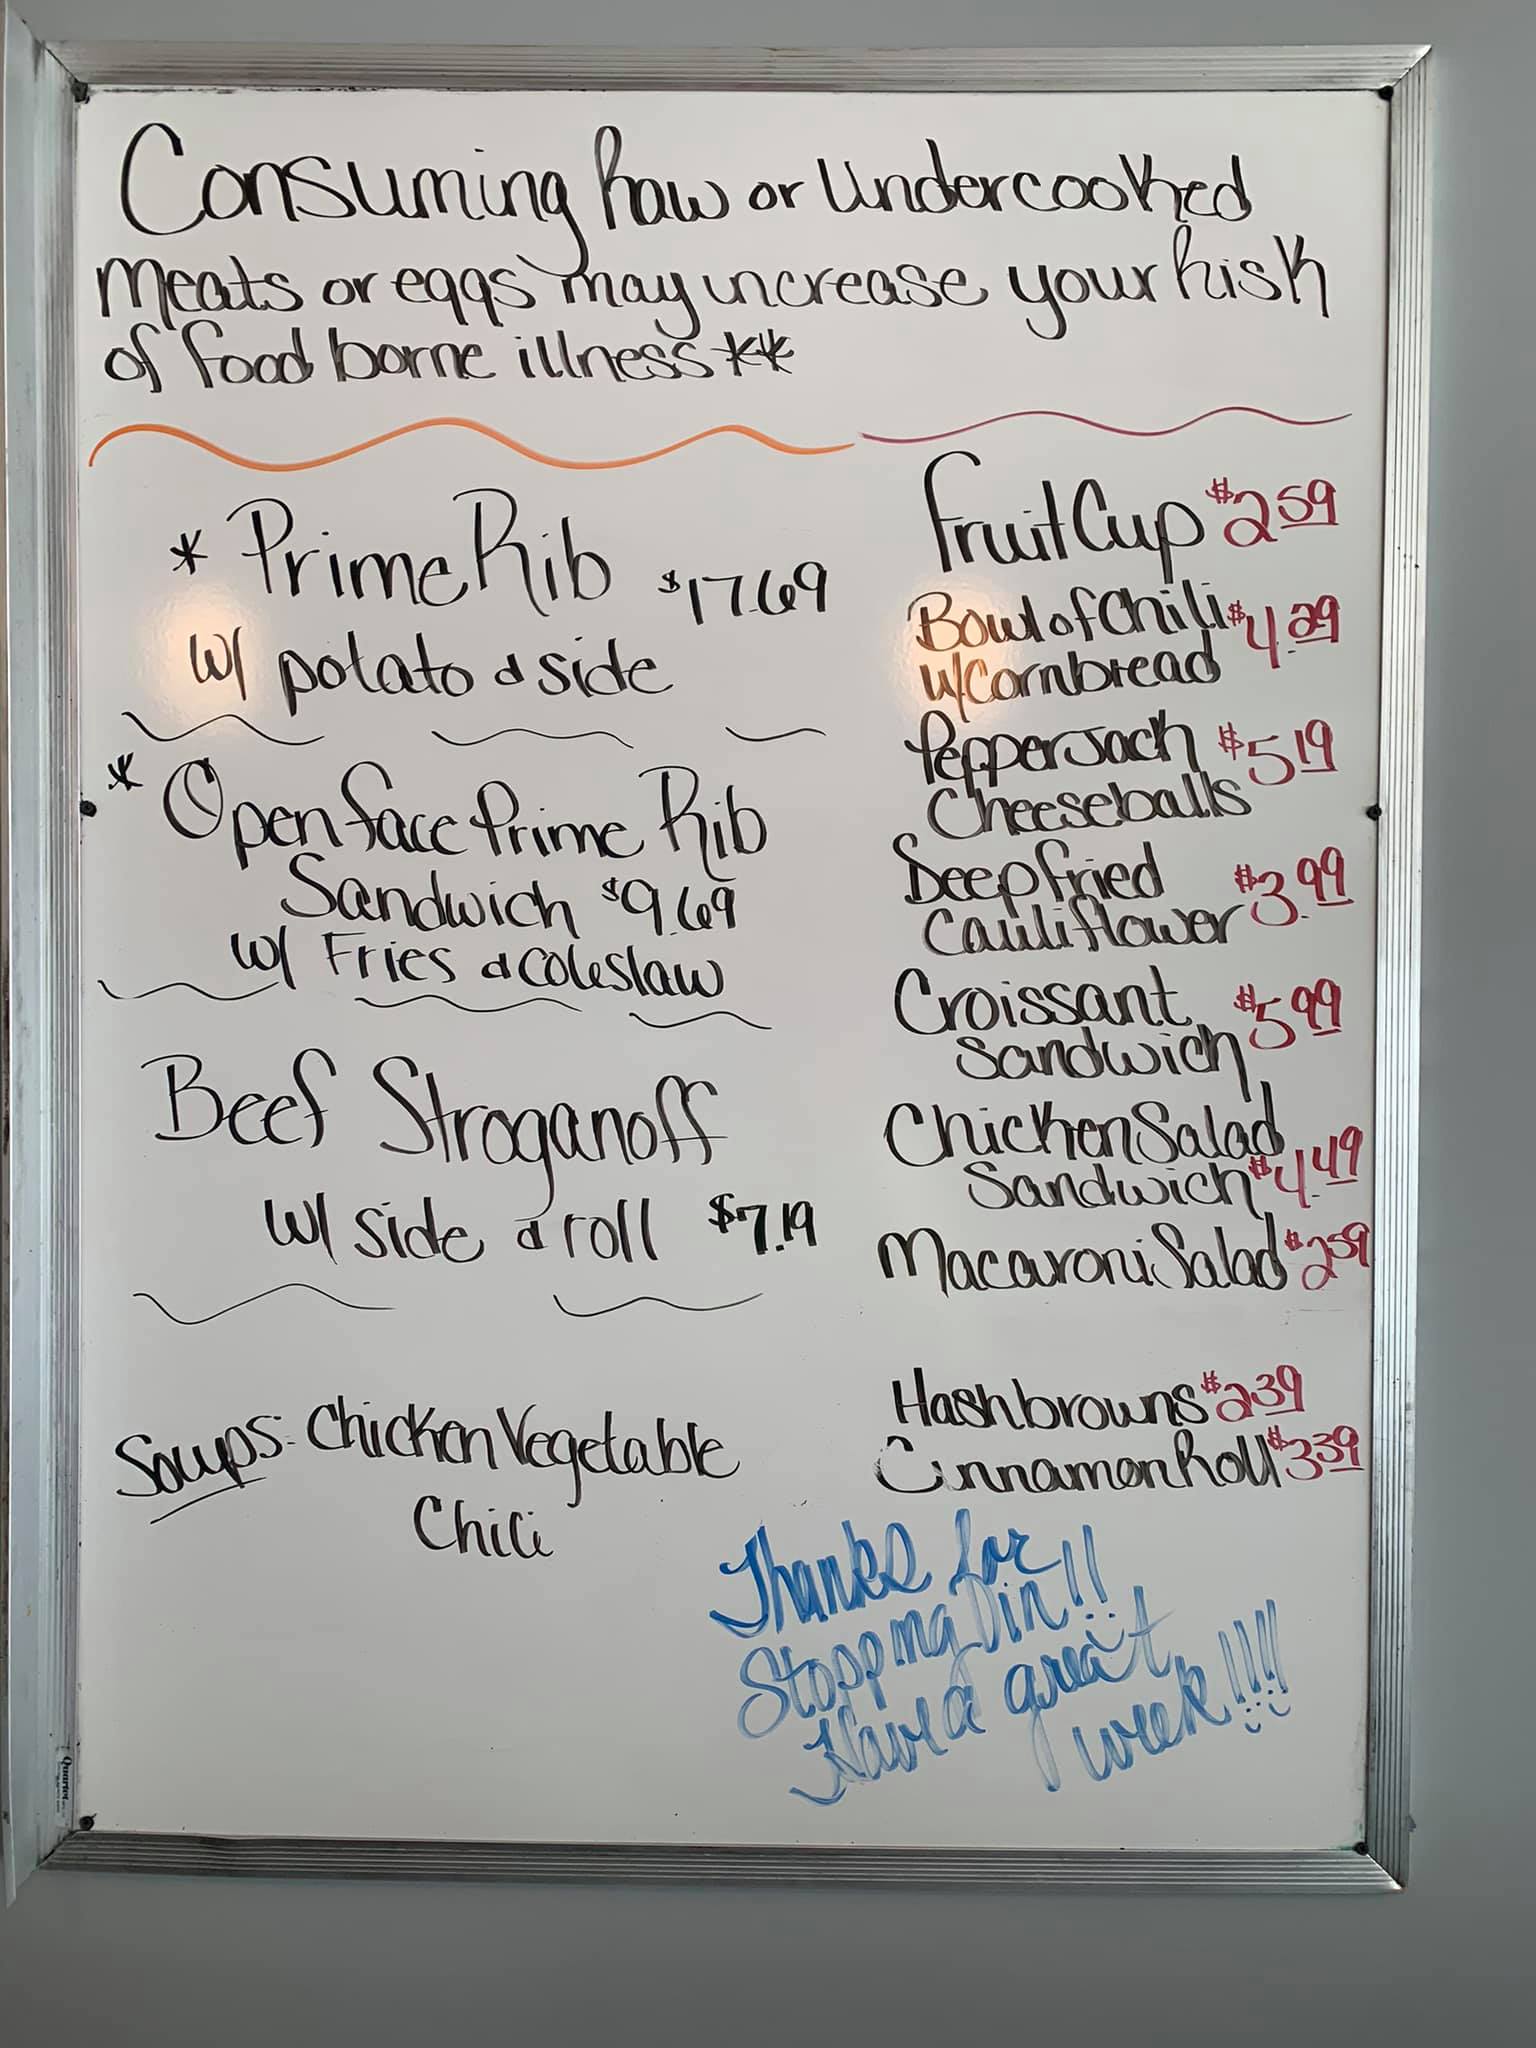 Consuming Raw or Undercooked
meats or eggs may increase your Risk
of food borne illness**
* Prime Rib $17.69
w/ potato & side
* Open face Prime Rib
Sandwich $9.69
w/ Fries & coleslaw
Beef Stroganoff
w/ side & roll $7.19
Soups: Chicken Vegetable
Chili
Fruit Cup $2.59
Bowl of Chili $4.29
w/ Cornbread
Pepper Jack $5.19
Cheeseballs
Deep Fried $3.99
Cauliflower
Croissant $5.99
Sandwich
Chicken Salad
Sandwich $4.49
Macaroni Salad $2.59
Hashbrowns $2.39
Cinnamon Roll $3.39
Thanks for
Stopping in!!
Have a great
week!!!!
Quartet